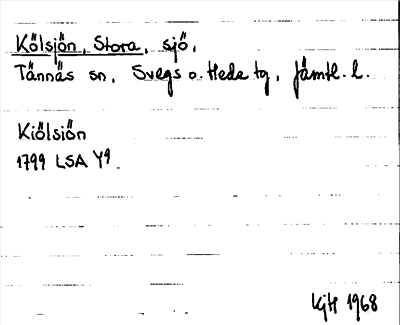 Kölsjön, Stora, sjö.
Tännäs sn. Svegs o. Hede tg, Jämtl. l.
Kiölsiön
1799 LSA Y9
KjH 1968